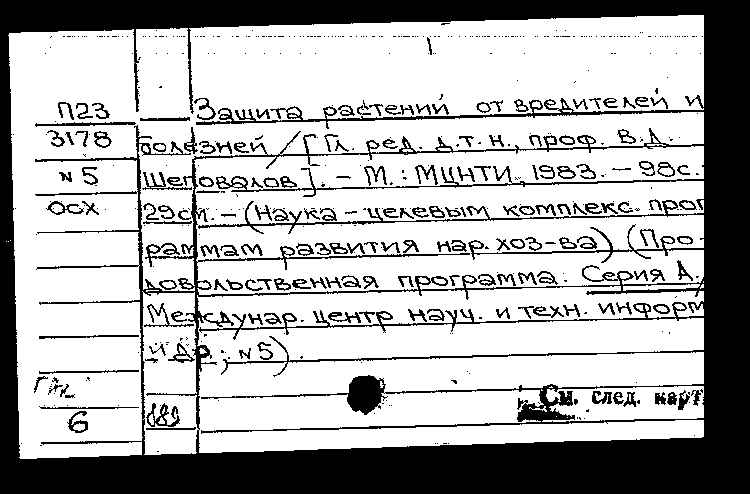 П23 Защита растений от вредителей и
3178 болезней / [Гл. ред. д.т.н., проф. В.Д.
N5 Шеповалов]. – М.: МЦНТИ, 1983. – 98с.
ОСХ 29см. – (Наука – целевым комплекс. прог
раммам развития нар. хоз-ва) (Про-
довольственная программа: Серия А.
Междунар. центр науч. и техн. информ
и др.; N5).
См. след. карт
6 889